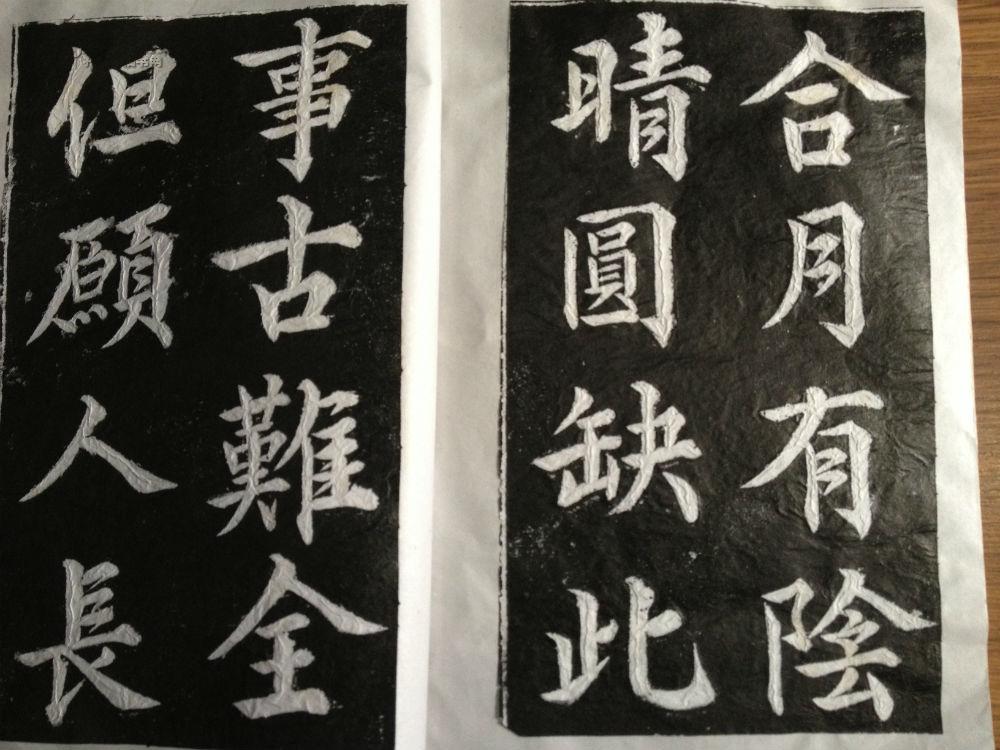 合月有陰
晴圓缺此
事古難全
但願人長